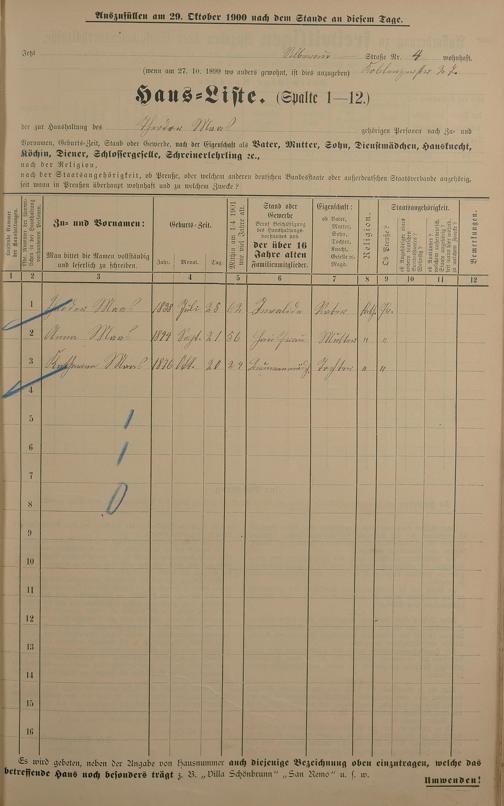 Auszufüllen am 29. Oktober 1900 nach dem Stande an diesem Tage.
Jetzt Straße Nr. 4 wohnhaft.
(wenn am 27. 10. 1899 wo anders gewohnt, ist dies anzugeben)
Haus-Liste. (Spalte 1—12.)
der zur Haushaltung des Theodor Maas gehörigen Personen nach Zu- und
Vornamen, Geburts-Zeit, Stand oder Gewerbe, nach der Eigenschaft als Vater, Mutter, Sohn, Dienstmädchen, Hausknecht,
Köchin, Diener, Schlossergeselle, Schreinerlehrling ec.,
nach der Religion,
nach der Staatsangehörigkeit, ob Preuße, oder welchem anderen deutschen Bundesstaate oder außerdeutschen Staatsverbande angehörig,
seit wann in Preußen überhaupt wohnhaft und zu welchem Zwecke?
Zu- und Vornamen:
Man bittet die Namen vollständig
und leserlich zu schreiben.
Geburts-Zeit.
Jahr. Monat. Tag.
Mithin am 1 4 1901
wie viel Jahre alt.
Stand oder
Gewerbe
des Haushaltungs-
vorstandes und
der über 16
Jahre alten
Familienmitglieder.
Eigenschaft:
ob Vater,
Mutter,
Sohn,
Tochter,
Knecht,
Geselle o.
Magd.
Religion.
Staatsangehörigkeit.
Ob Preuße?
Bemerkungen.
1 2 3 4 5 6 7 8 9 10 11 12
1 Theodor Maas 1838 Juli 25 62 Invalide Vater kath. Pr.
2 Anna Maas 1844 Sept. 21 56 Hausfrau Mutter " "
3 Maas 1876 Okt. 20 24 Tochter " "
4
5
6
7
8
9
10
11
12
13
14
15
16
1
1
0
Es wird gebeten, neben der Angabe von Hausnummer auch diejenige Bezeichnung oben einzutragen, welche das
betreffende Haus noch besonders trägt z. B. „Villa Schönbrunn" „San Remo" u. s. w.
Umwenden!